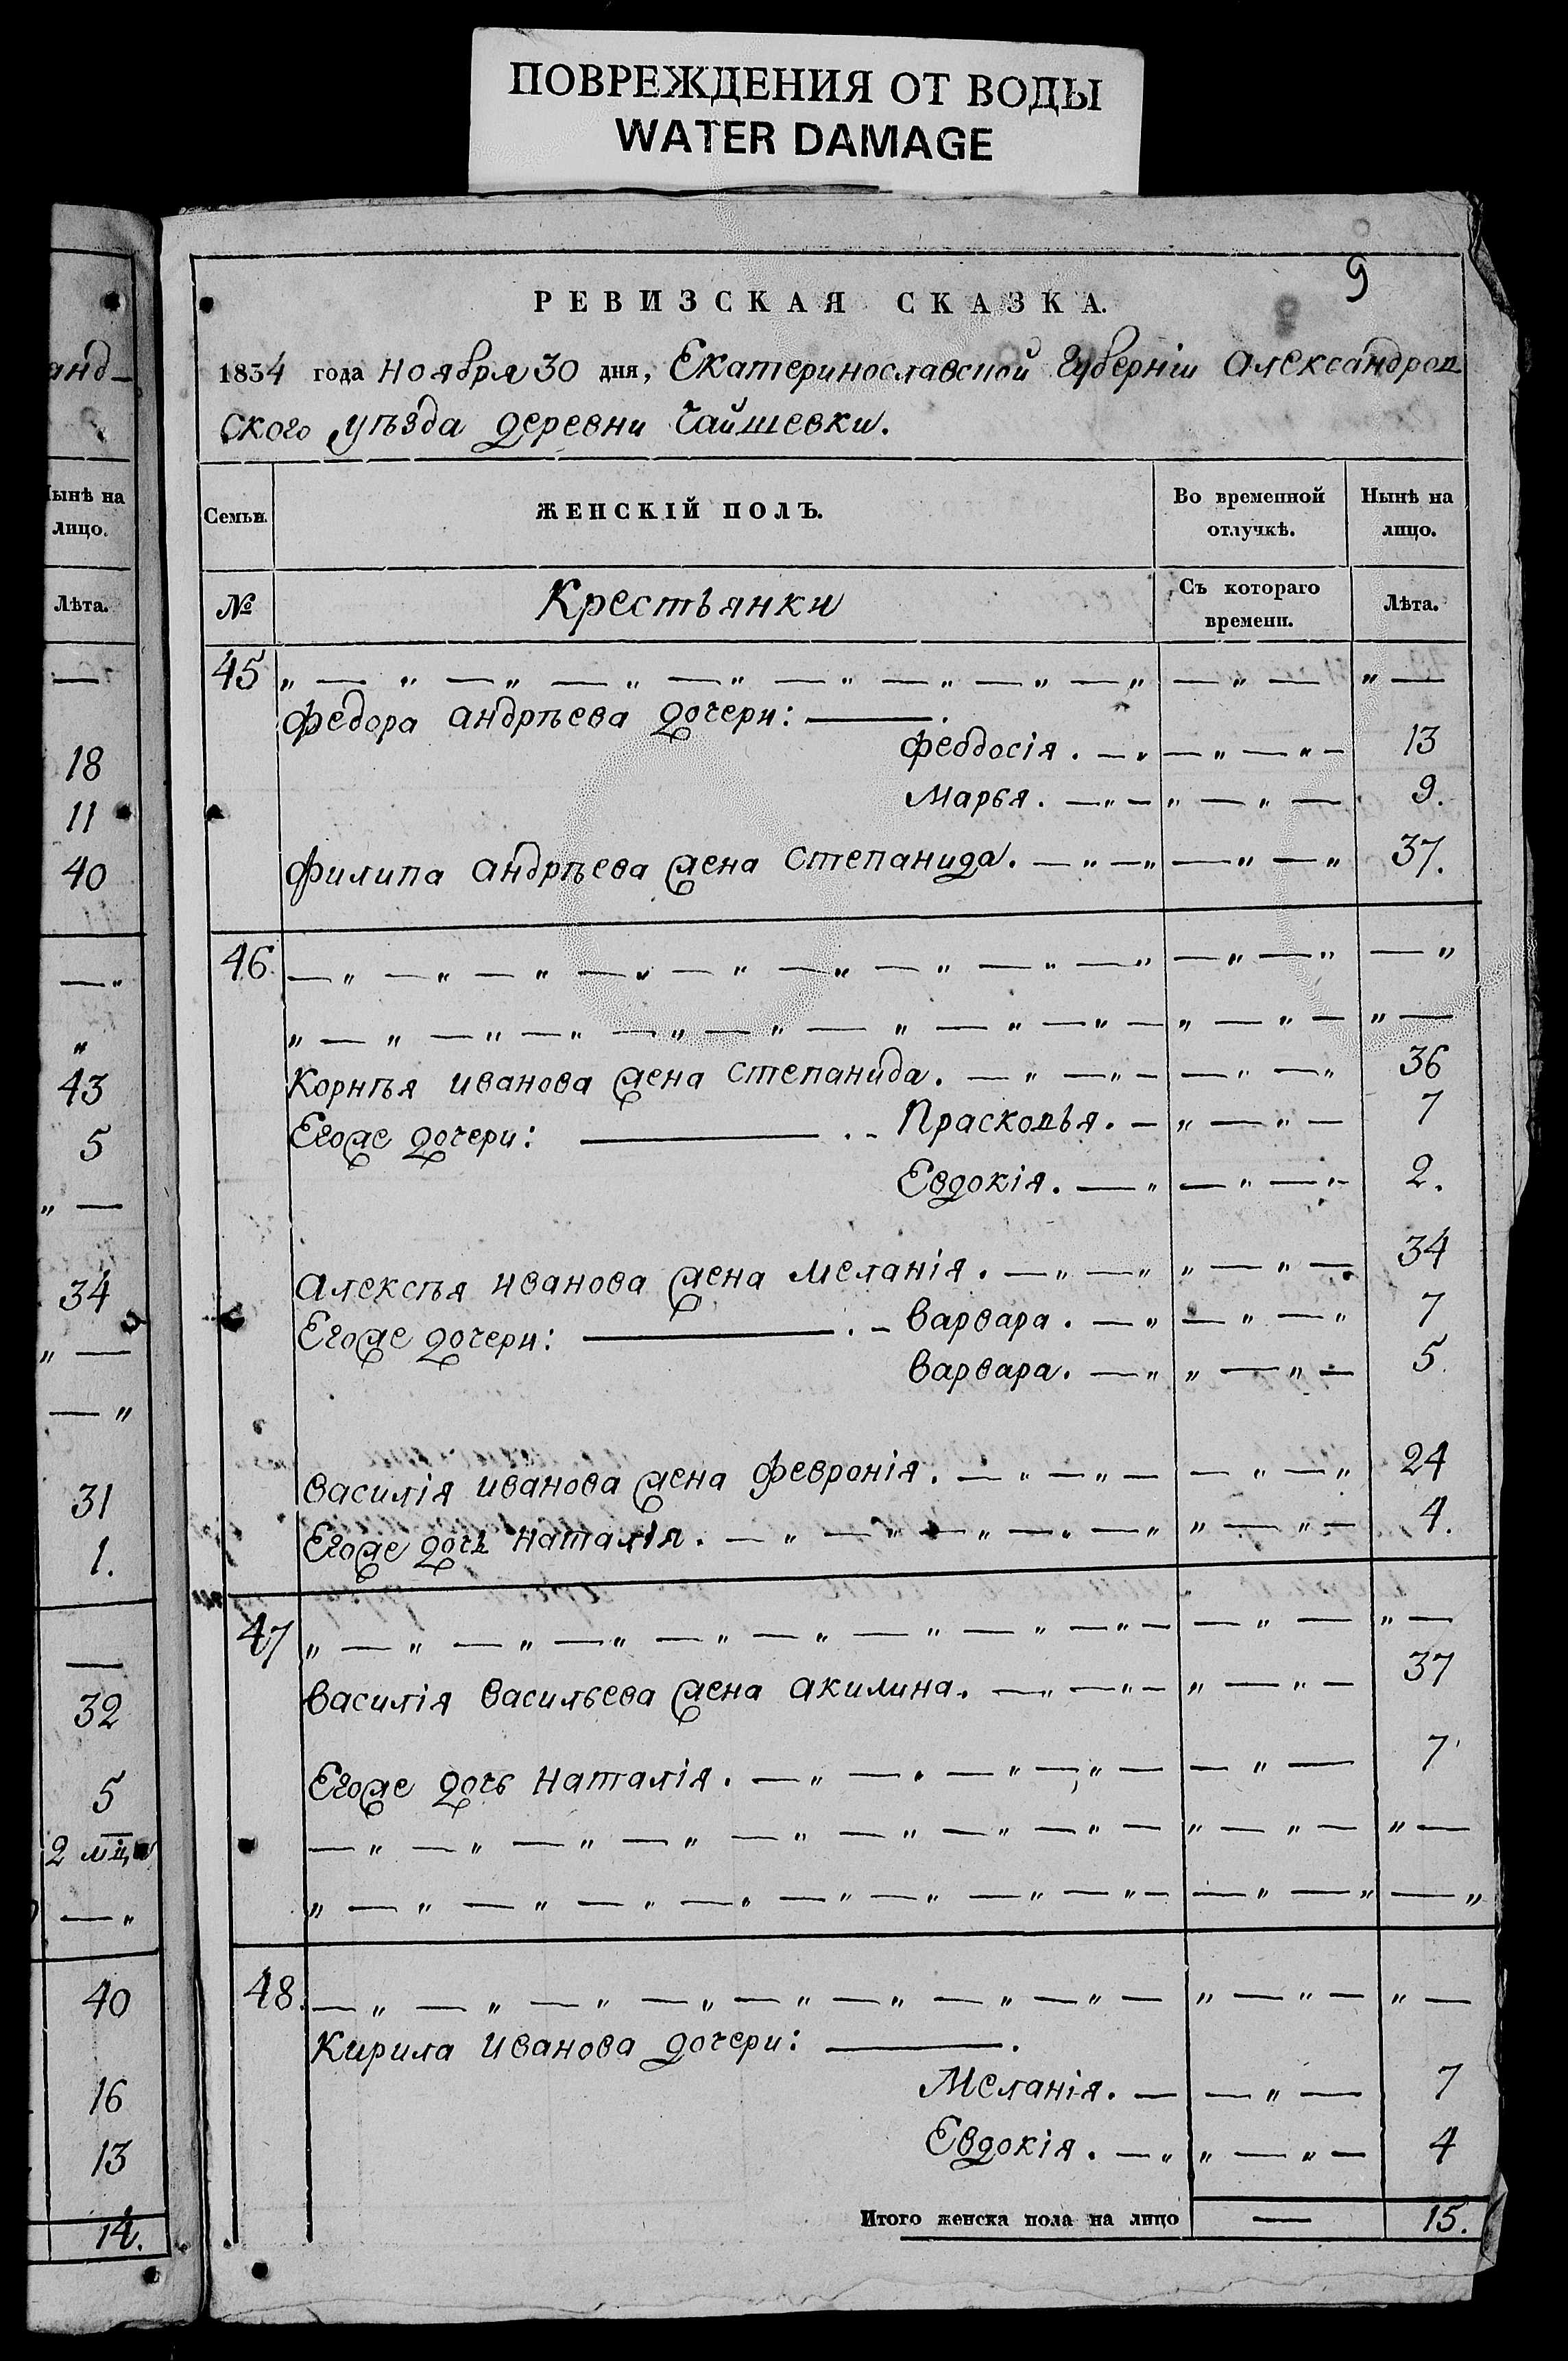 ПОВРЕЖДЕНИЯ ОТ ВОДЫ
WATER DAMAGE
анд-
Нынѣ на
лицо.
Лѣта.
18
11
40
43
5
34
31
1.
32
5
2 мц
40
16
13
14.
9
РЕВИЗСКАЯ СКАЗКА.
1834 года ноября 30 дня, Екатеринославской Губерніи Александров
ского уѣзда деревни Чайшевки.
Семьи. ЖЕНСКІЙ ПОЛЪ. Во временной отлучкѣ. Нынѣ на лицо.
№ Крестьянки Съ котораго времени. Лѣта.
45 „ — „ — „ — „ — „ — „ — „ — „ — „ — „ — „ —
Федора Андрѣева дочери: ——.
Феодосія. — „ — „ — „ — 13
Марья. — „ — „ — „ — 9.
Филипа Андрѣева жена Степанида. — „ — „ — „ — „ 37.
46. — „ — „ — „ — „ — „ — „ — „ — „ — „ — „ — „ — „
„ — „ — „ — „ — „ — „ — „ — „ — „ — „ — „ — „ —
Корнѣя Иванова жена Степанида. — „ — „ — — „ — „ 36
Егоже дочери: —— . - Прасковья. — „ — „ — 7
Евдокія. — „ — „ — „ - 2.
Алексѣя Иванова жена Меланія. — „ — „ „ — „ — 34
Егоже дочери: —— . - Варвара. — „ — „ — „ 7
Варвара. — „ „ — „ — 5
Василія Иванова жена Февронія. — „ — „ — — „ — „ 24
Егоже дочь Наталія. — „ — „ — „ — „ — „ „ — „ — 4.
47 „ — „ — „ — „ — „ — „ — „ — „ — „ — — „ — „ —
Василія Васильева жена Акилина. — „ — „ — „ — „ — 37
Егоже дочь Наталія. — „ — „ — „ — „ — — „ — 7
— „ — „ — „ — „ — „ — „ — „ — „ — „ — „ — „ —
„ — „ — „ — „ — „ — „ — „ — „ — „ — — „ — „ — „
48. — „ — „ — „ — „ — „ — „ — „ — „ — „ — „ — „ —
Кирила Иванова дочери: ——.
Меланія. — — „ — 7
Евдокія. — „ „ — „ — 4
Итого женска пола на лицо — 15.